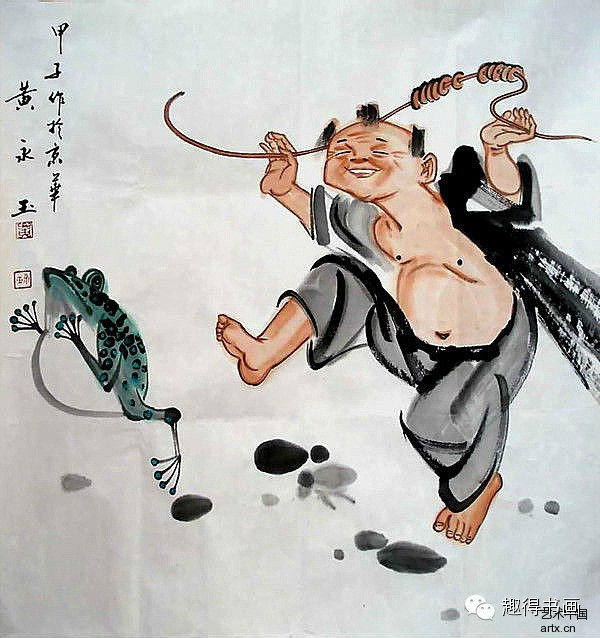 甲子作於京華
黄永玉
趣得书画
艺术中国
artx.cn